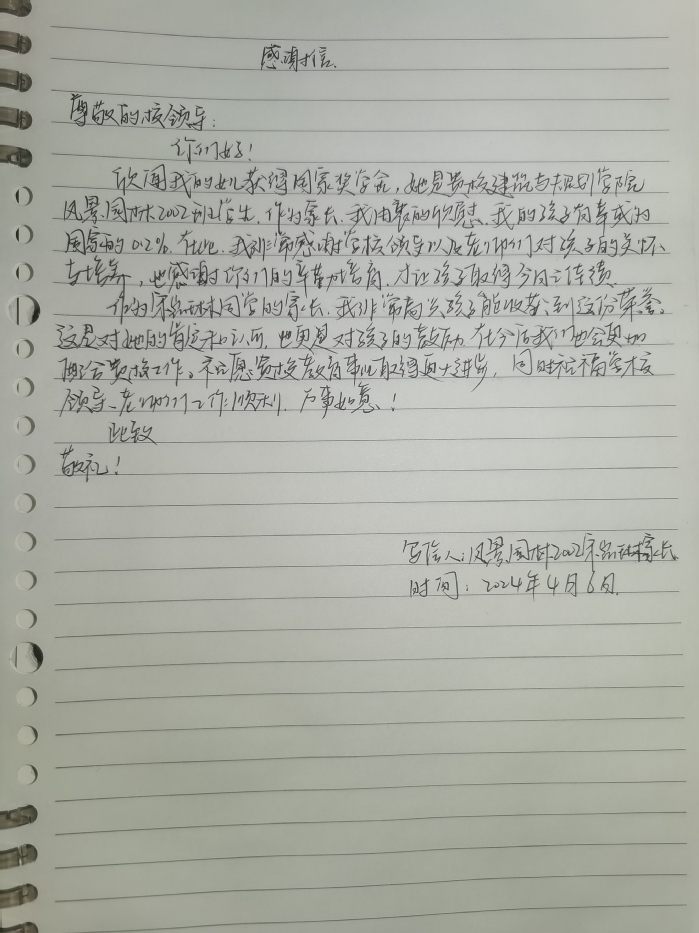 感谢信.
尊敬的校领导：
你们好！
欣闻我的女儿获得国家奖学金，她是贵校建筑与规划学院
风景园林2002班学生.作为家长.我由衷的欣慰.我的孩子有幸成为
国家的0.2%.在此.我非常感谢学校领导以及老师们对孩子的关怀
与培养，也感谢你们的辛勤培育.才让孩子取得今日之佳绩.
作为宋 同学的家长.我非常高兴孩子能收获到这份荣誉.
这是对她的肯定和认可，也更是对孩子的鼓励.在今后我们也会更加
配合贵校工作。祝愿贵校教育事业取得更大进步，同时祝福学校
领导、老师们工作顺利.万事如意！
此致
敬礼！
写信人:风景园林2002宋 家长
时间：2024年4月6日.